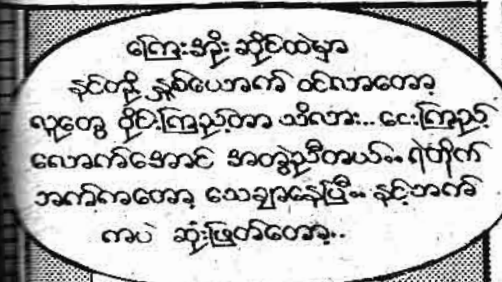 ကြေးအိုး ဆိုင်ထဲမှာ
နင်တို့ နှစ်ယောက် ဝင်လာတော့
လူတွေ ဝိုင်းကြည့်တာ သိလား.. ငေးကြည့်
လောက်အောင် အတွဲညီတယ်.. ရဲတိုက်
ဘက်ကတော့ သေချာနေပြီ.. နင့်ဘက်
ကပဲ ဆုံးဖြတ်တော့..